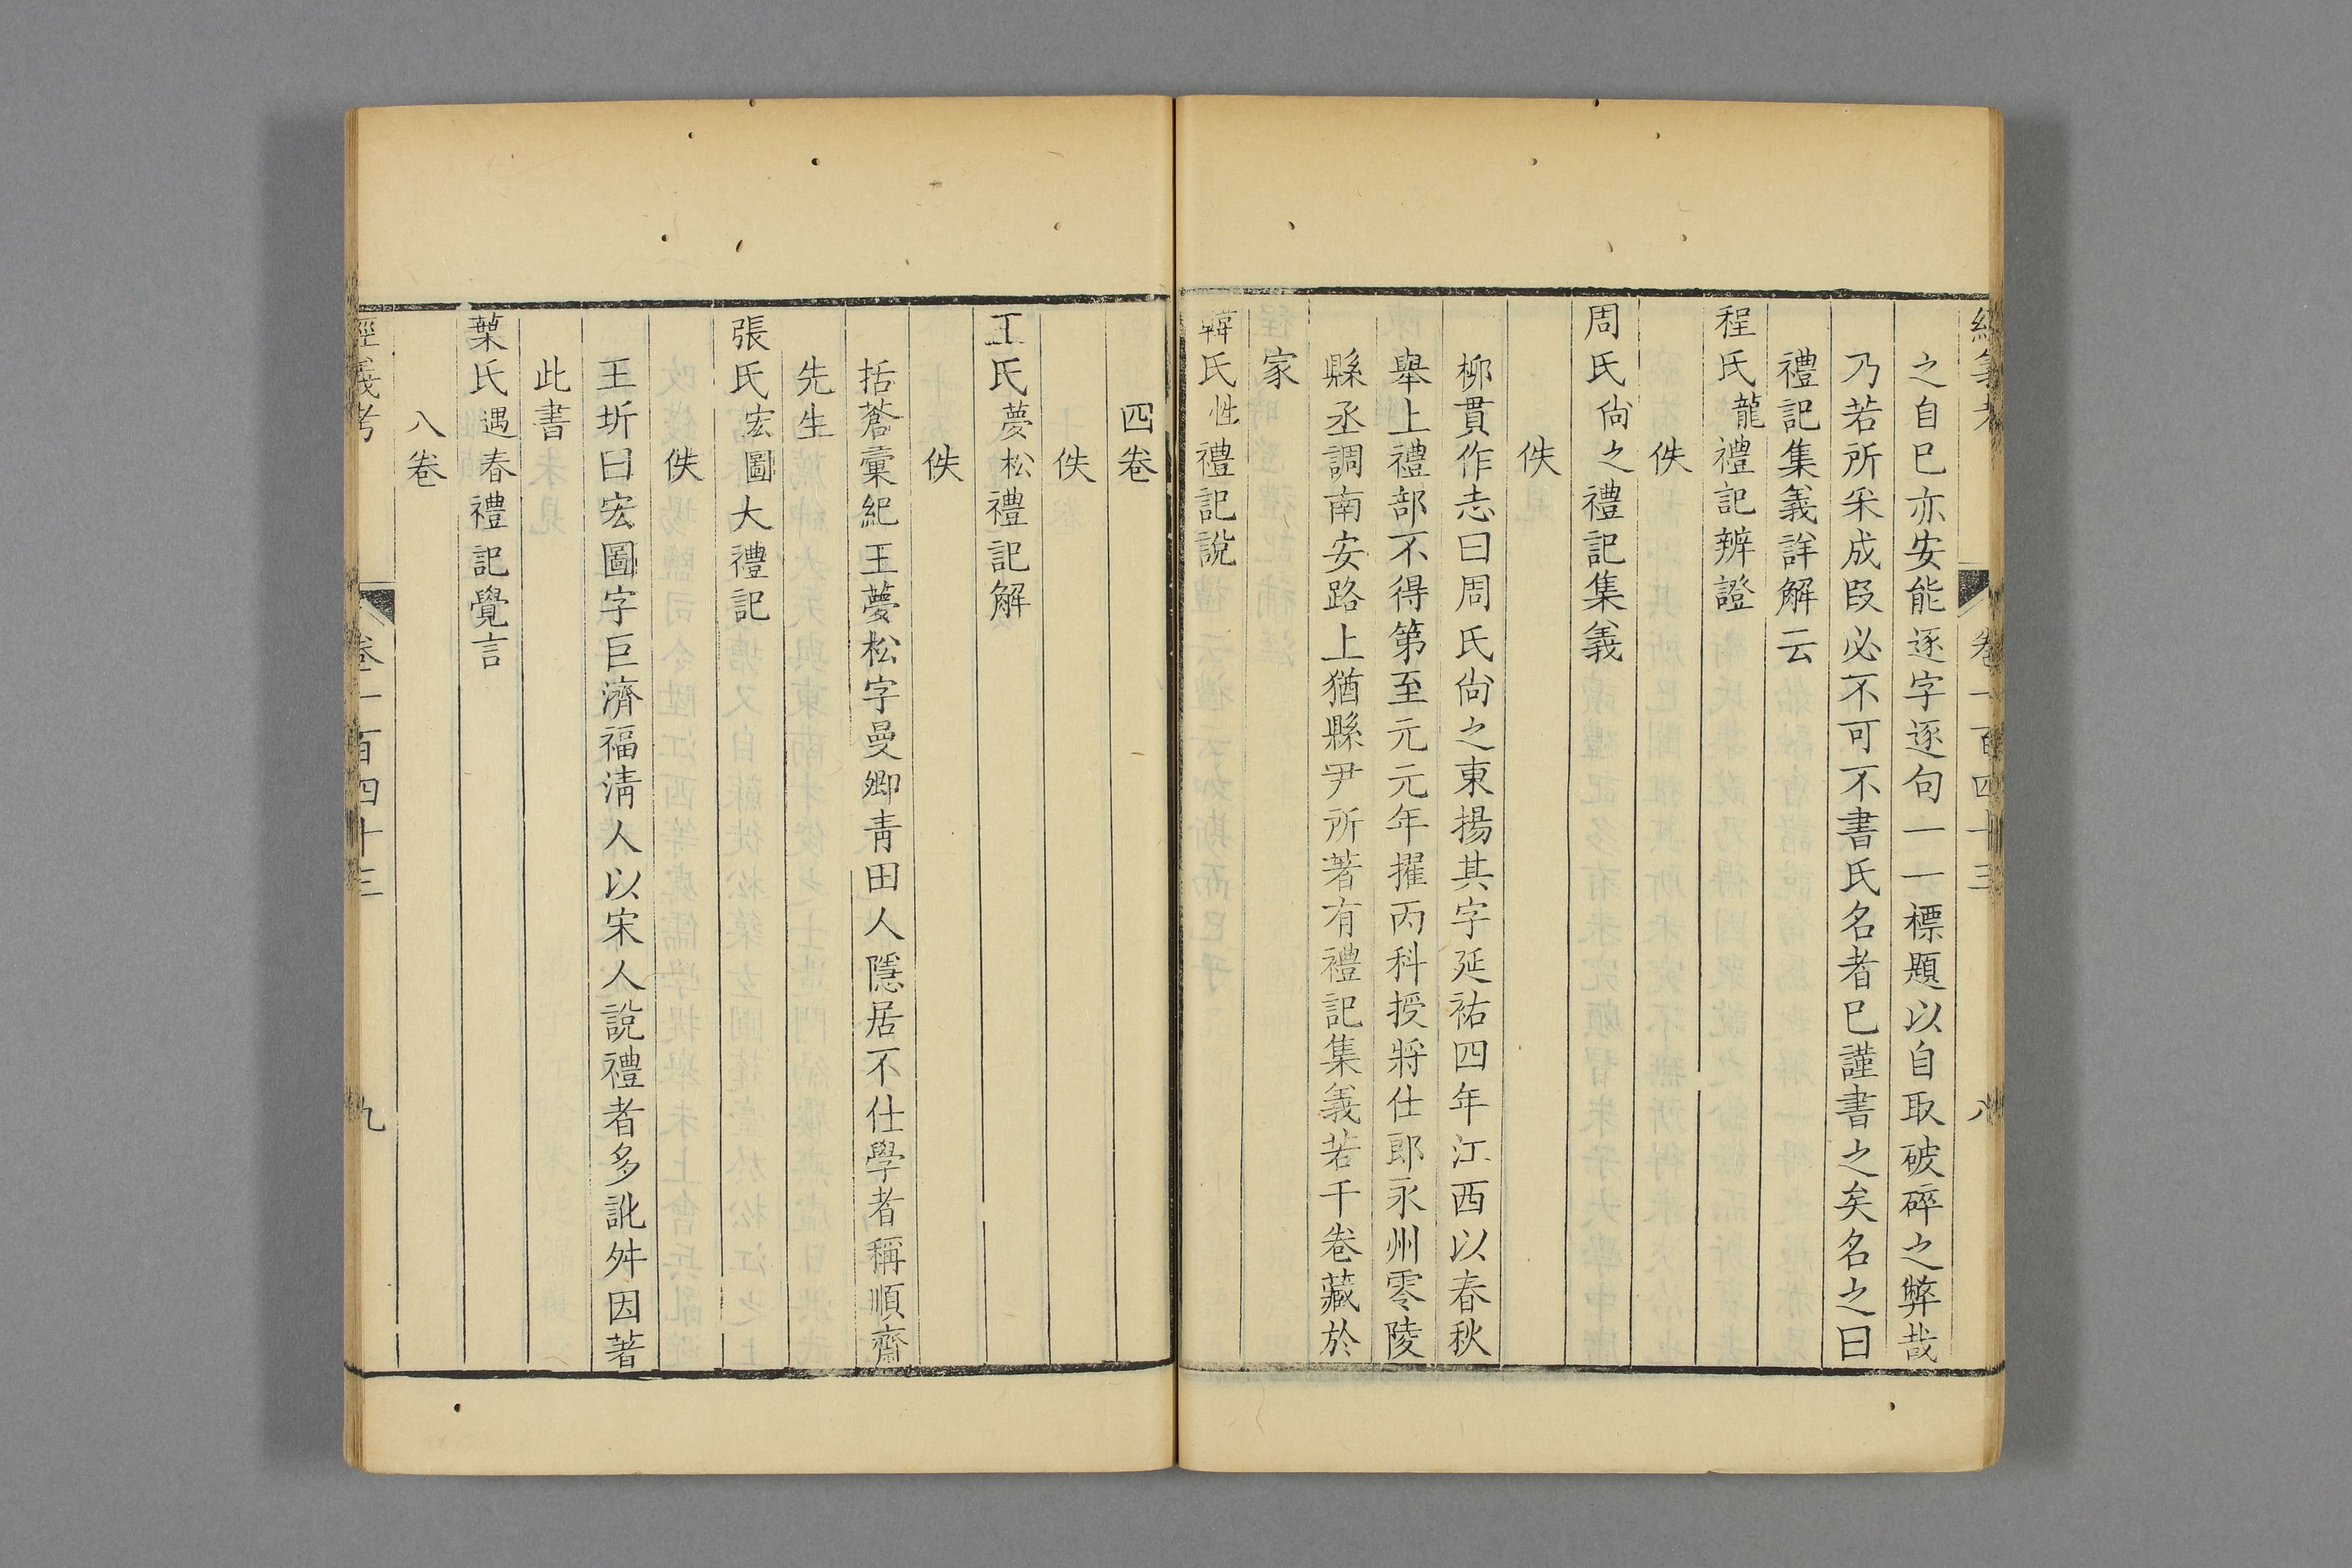 經義考 卷一百四十三 八
之自巳亦安能逐字逐句一一標題以自取破碎之弊哉
乃若所采成段必不可不書氏名者巳謹書之矣名之曰
禮記集義詳解云
程氏龍禮記辨證
佚
周氏尙之禮記集義
佚
柳貫作志曰周氏尙之東揚其字延祐四年江西以春秋
舉上禮部不得第至元元年擢丙科授將仕郎永州零陵
縣丞調南安路上猶縣尹所著有禮記集義若干卷藏於
家
韓氏性禮記說
四卷
佚
王氏夢松禮記解
佚
括蒼彙紀王夢松字曼卿靑田人隱居不仕學者稱順齋
先生
張氏宏圖大禮記
佚
王圻曰宏圖字巨濟福淸人以宋人說禮者多訛舛因著
此書
葉氏遇春禮記覺言
八卷
經義考 卷一百四十三 九